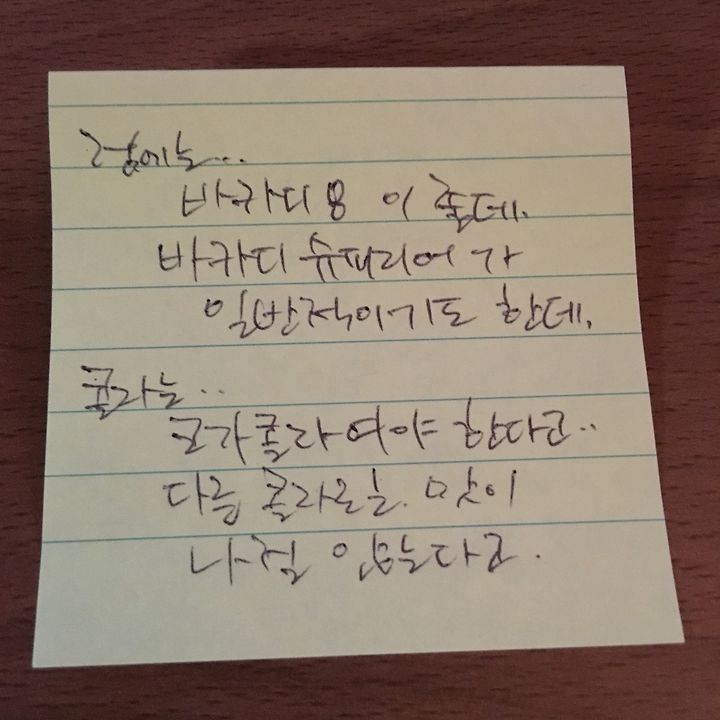 럼에는...
바카디 8 이 좋데.
바카디 슈퍼리어가
일반적이기도 한데,
콜라는..
코카콜라여야 한다고..
다른 콜라로는 맛이
나질 않는다고.